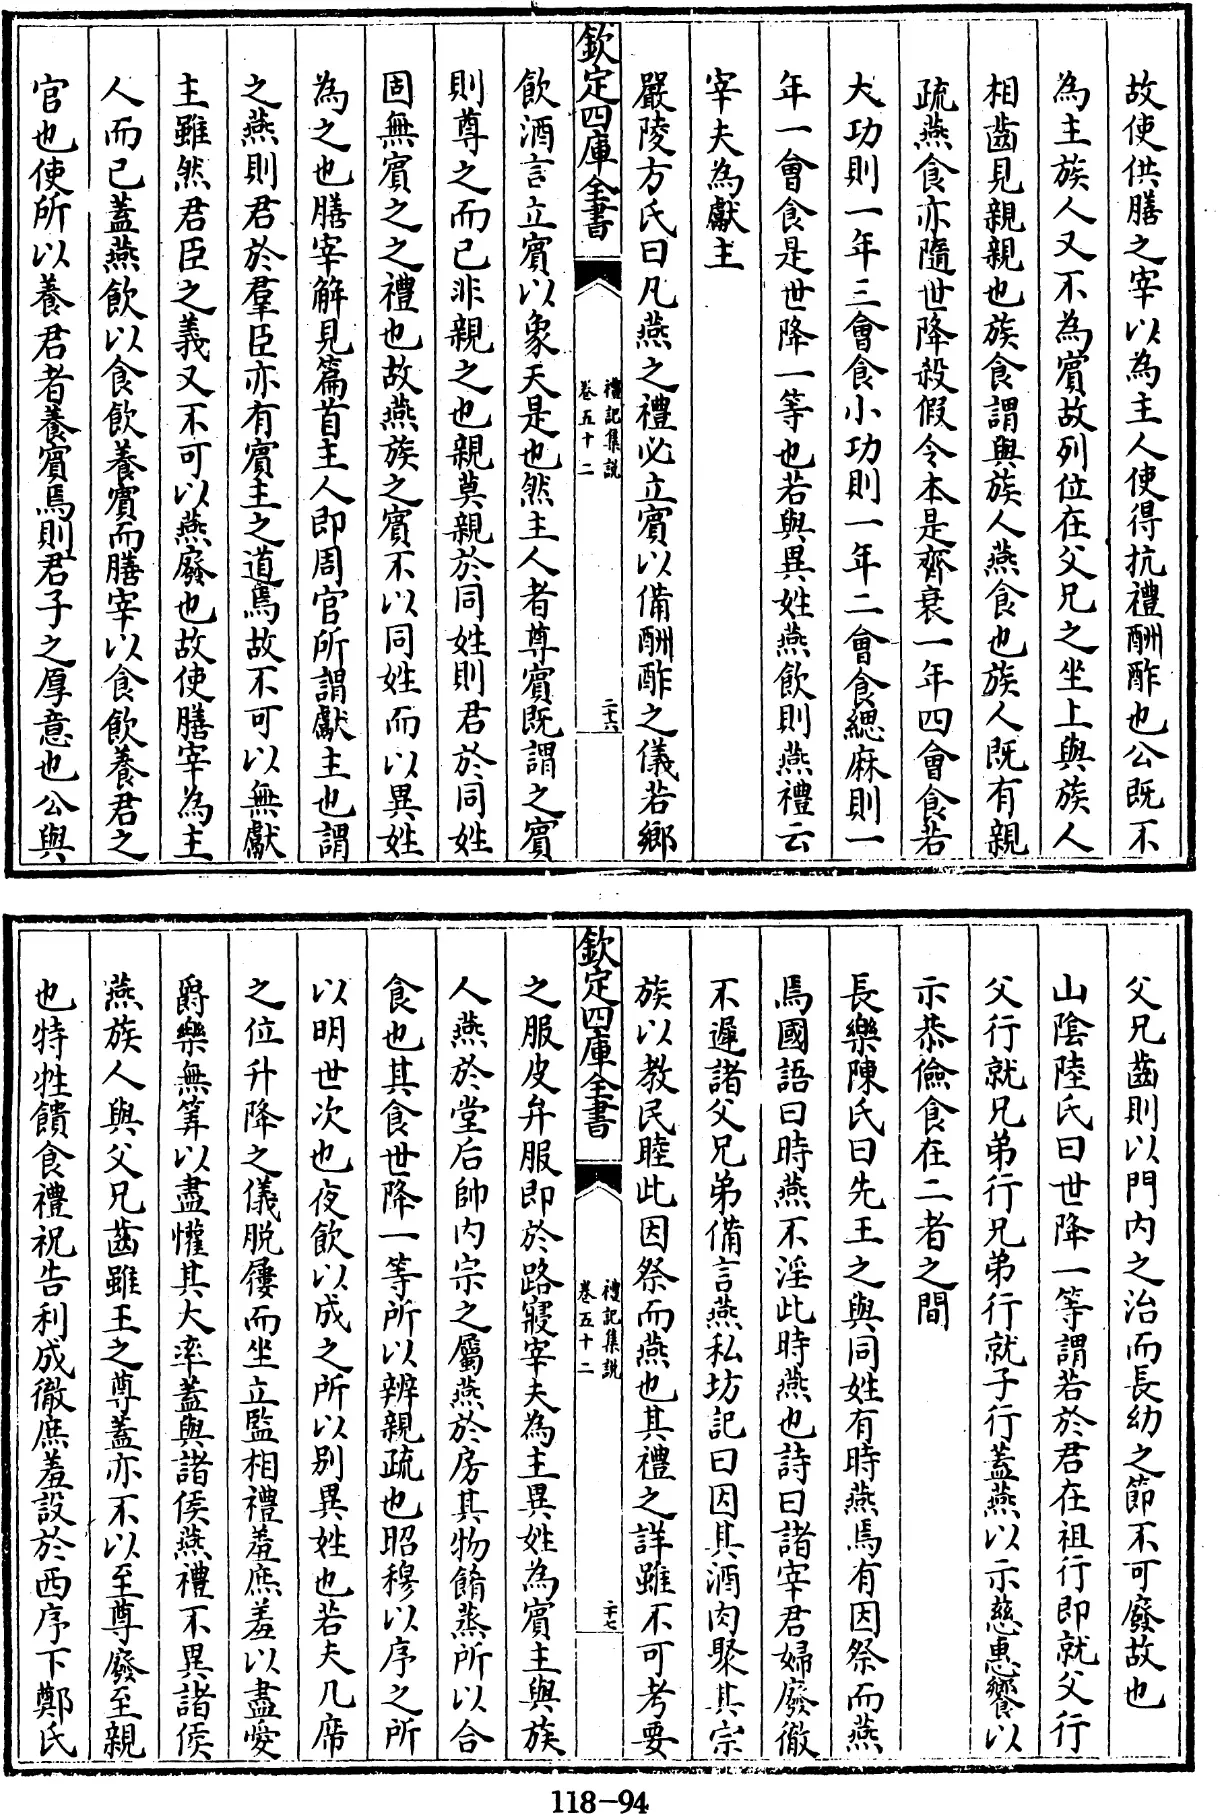 故使供膳之宰以為主人使得抗禮酬酢也公既不
為主族人又不為賓故列位在父兄之坐上與族人
相齒見親親也族食謂與族人燕食也族人既有親
疏燕食亦隨世降殺假令本是齊衰一年四會食若
大功則一年三會食小功則一年二會食緦麻則一
年一會食是世降一等也若與異姓燕飲則燕禮云
宰夫為獻主
嚴陵方氏曰凡燕之禮必立賓以備酬酢之儀若鄉
欽定四庫全書
禮記集說
卷五十二
二十六
飲酒言立賓以象天是也然主人者尊賓既謂之賓
則尊之而已非親之也親莫親於同姓則君於同姓
固無賓之之禮也故燕族之賓不以同姓而以異姓
為之也膳宰解見篇首主人即周官所謂獻主也謂
之燕則君於羣臣亦有賓主之道焉故不可以無獻
主雖然君臣之義又不可以燕廢也故使膳宰為主
人而已蓋燕飲以食飲養賓而膳宰以食飲養君之
官也使所以養君者養賓焉則君子之厚意也公與
父兄齒則以門内之治而長幼之節不可廢故也
山陰陸氏曰世降一等謂若於君在祖行即就父行
父行就兄弟行兄弟行就子行蓋燕以示慈惠饗以
示恭儉食在二者之間
長樂陳氏曰先王之與同姓有時燕焉有因祭而燕
焉國語曰時燕不淫此時燕也詩曰諸宰君婦廢徹
不遲諸父兄弟備言燕私坊記曰因其酒肉聚其宗
族以教民睦此因祭而燕也其禮之詳雖不可考要
欽定四庫全書
禮記集說
卷五十二
二十七
之服皮弁服即於路寢宰夫為主異姓為賓主與族
人燕於堂后帥内宗之屬燕於房其物餚蒸所以合
食也其食世降一等所以辨親疏也昭穆以序之所
以明世次也夜飲以成之所以別異姓也若夫几席
之位升降之儀脱屨而坐立監相禮羞庶羞以盡愛
爵樂無筭以盡懽其大率蓋與諸侯燕禮不異諸侯
燕族人與父兄齒雖王之尊蓋亦不以至尊廢至親
也特牲饋食禮祝告利成徹庶羞設於西序下鄭氏
118-94